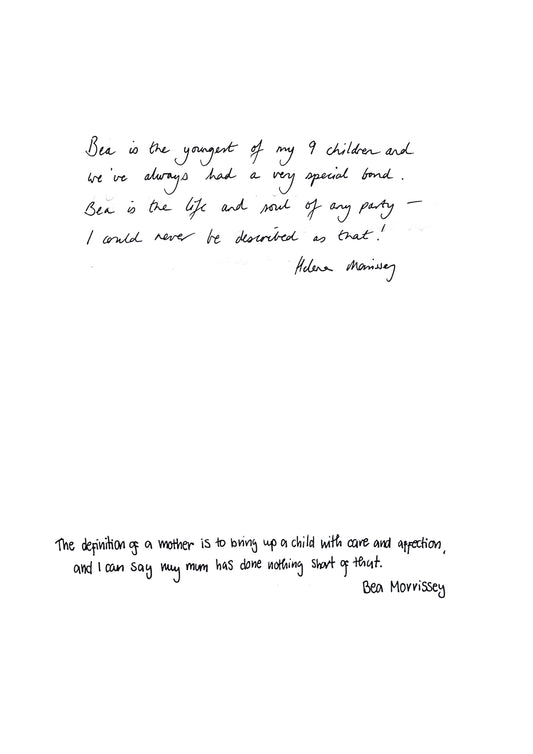 Bea is the youngest of my 9 children and
we've always had a very special bond.
Bea is the life and soul of any party –
I could never be described as that!
Helena Morrissey
The definition of a mother is to bring up a child with care and affection,
and I can say my mum has done nothing short of that.
Bea Morrissey